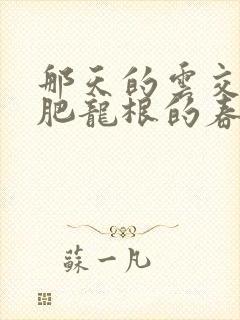 那天的雲交
肥龍根的春
蘇一凡